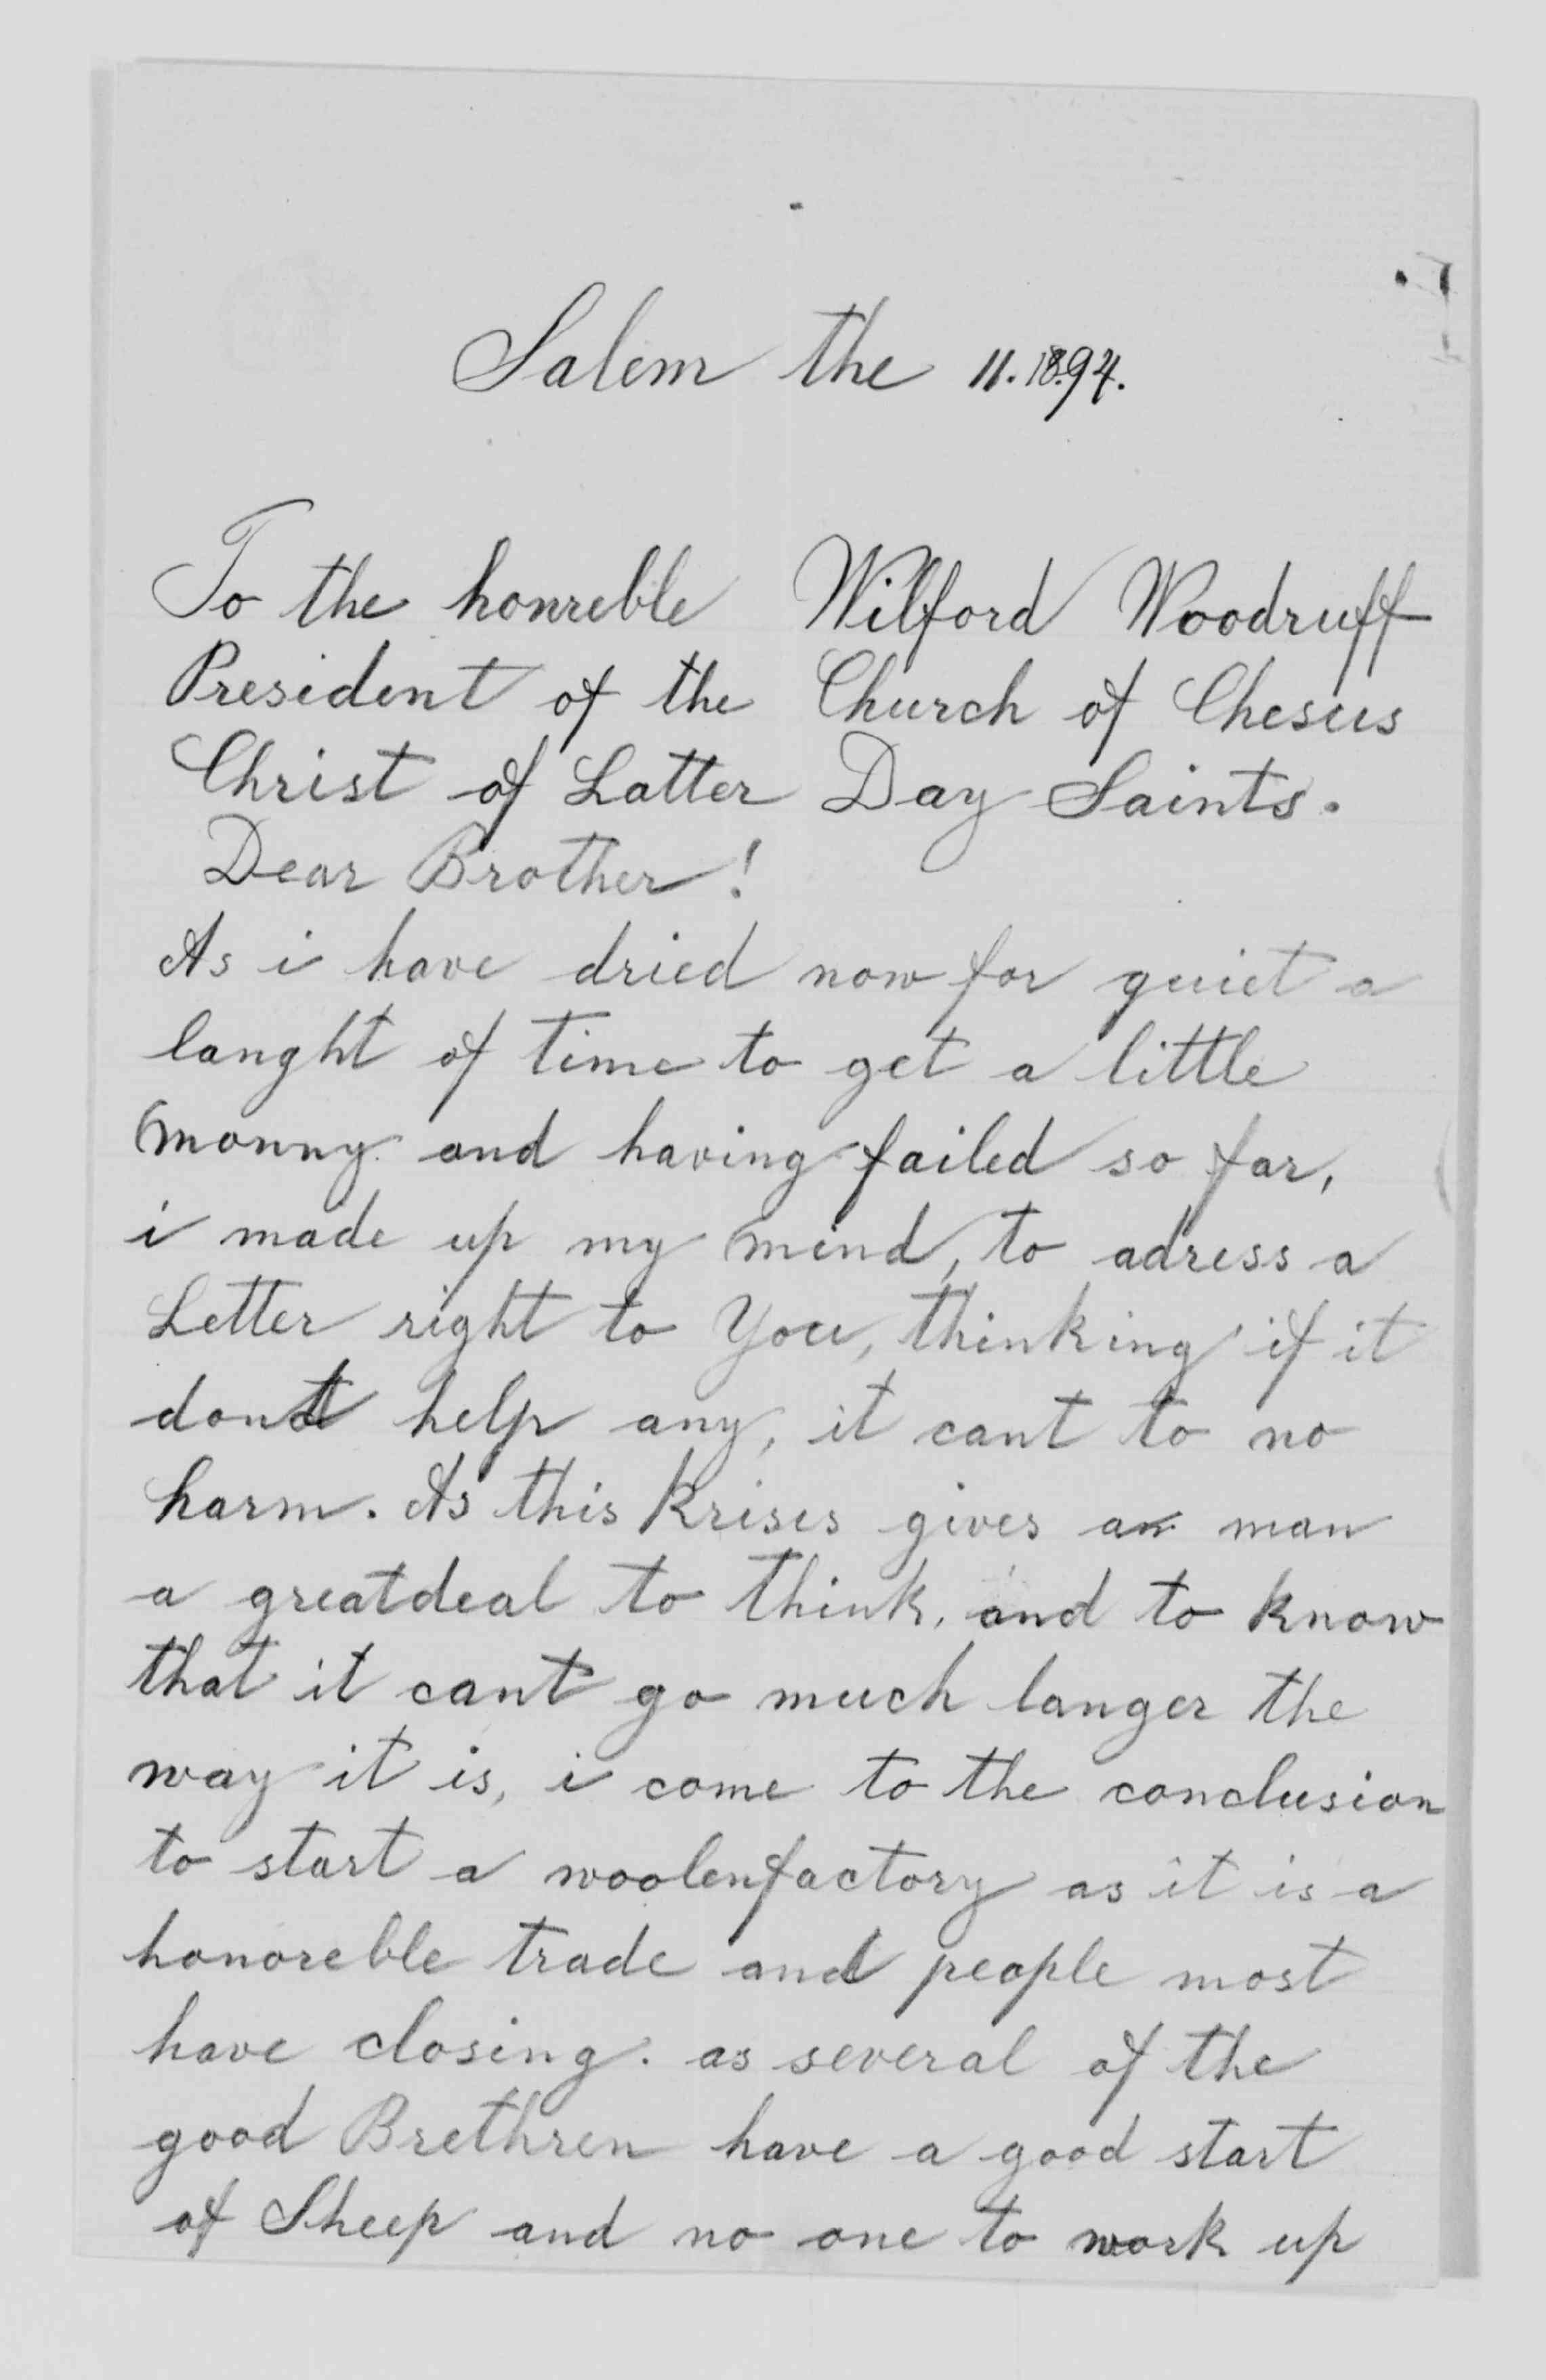 Salem the 11. 18.94.
To the honreble Wilford Woodruff
President of the Church of Chesus
Christ of Latter Day Saints.
Dear Brother!
As i have dried now for quiet a
langht of time to get a little
monny and having failed so far,
i made up my mind, to adress a
Letter right to You, thinking if it
dont help any, it cant to no
harm. As this Krises gives an man
a greatdeal to think, and to know
that it cant go much langer the
way it is, i come to the conclusion
to start a woolenfactory as it is a
honoreble trade and people most
have closing. as several of the
good Brethren have a good start
of Sheep and no one to work up